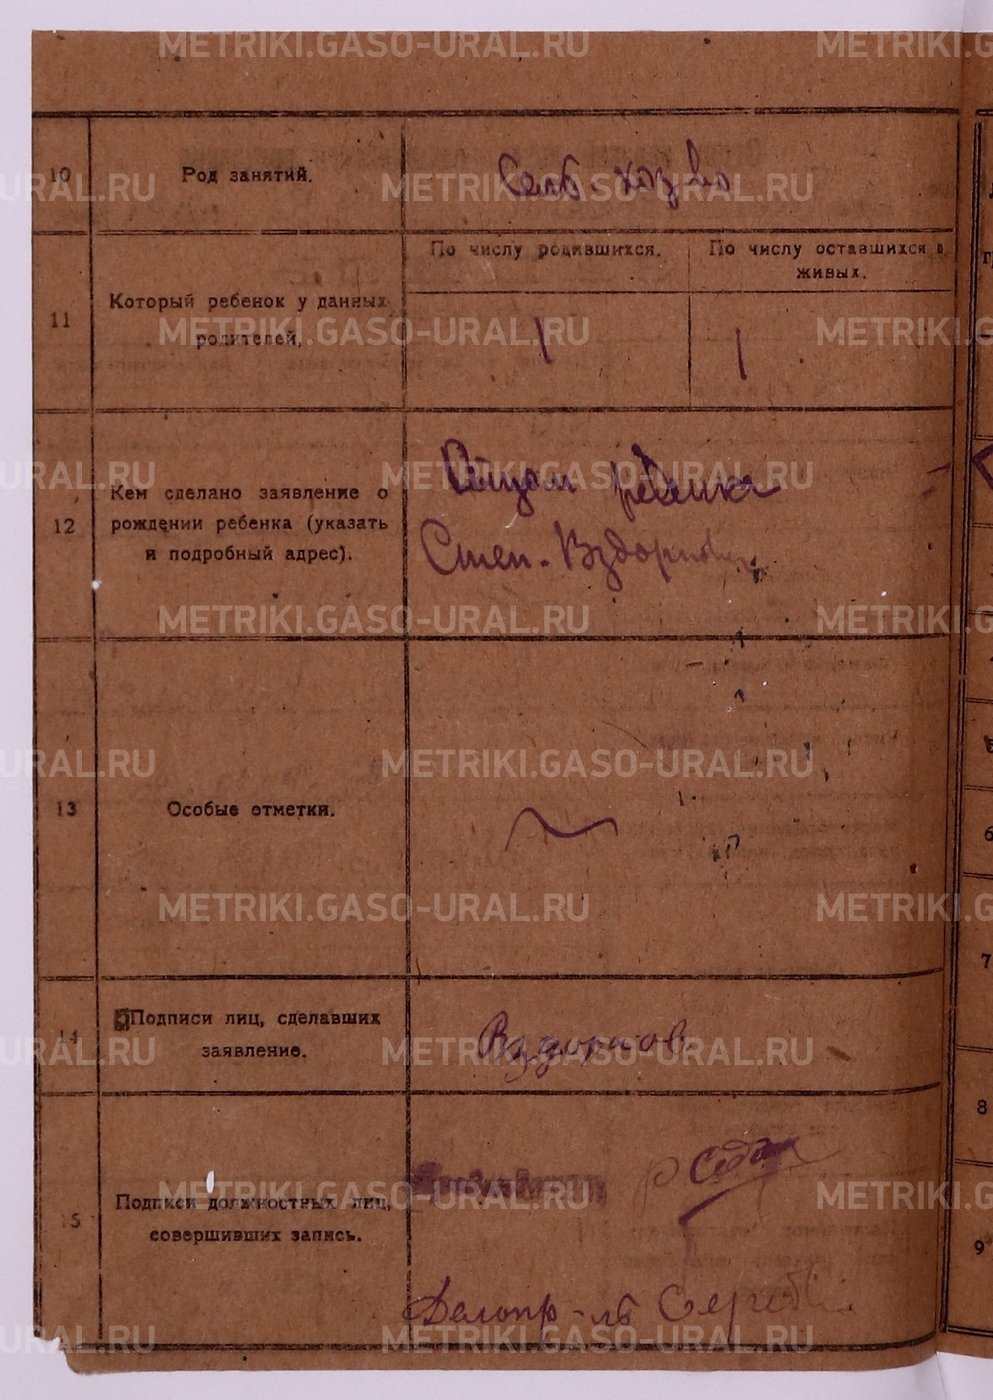 METRIKI.GASO-URAL.RU METRIKI.G
10 Род занятий. Сельб.-хоз во
URAL.RU METRIKI.GASO-URAL.RU
По числу родившихся. По числу оставшихся в
живых.
11 Который ребенок у данных
родителей. 1 1
METRIKI.GASO-URAL.RU METRIKI.G
Отцом ребенка
URAL.RU METRIKI.GASO-URAL.RU
12 Кем сделано заявление о
рождении ребенка (указать
и подробный адрес).
Степ. Вздорнов
METRIKI.GASO-URAL.RU METRIKI.G
URAL.RU METRIKI.GASO-URAL.RU
13 Особые отметки.
6
METRIKI.GASO-URAL.RU METRIKI.G
7
14 Подписи лиц, сделавших
заявление. Вздорнов
URAL.RU METRIKI.GASO-URAL.RU
8
METRIKI.GASO-URAL.RU METRIKI.G
15 Подписи должностных лиц,
совершивших запись.
9
Делопр-ль
URAL.RU METRIKI.GASO-URAL.RU